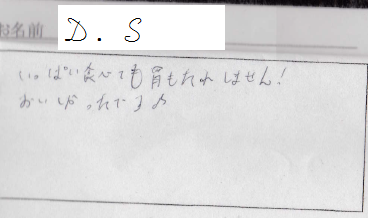 お名前 D. S
いっぱい食べても胃もたれしません!
おいしかったです♪